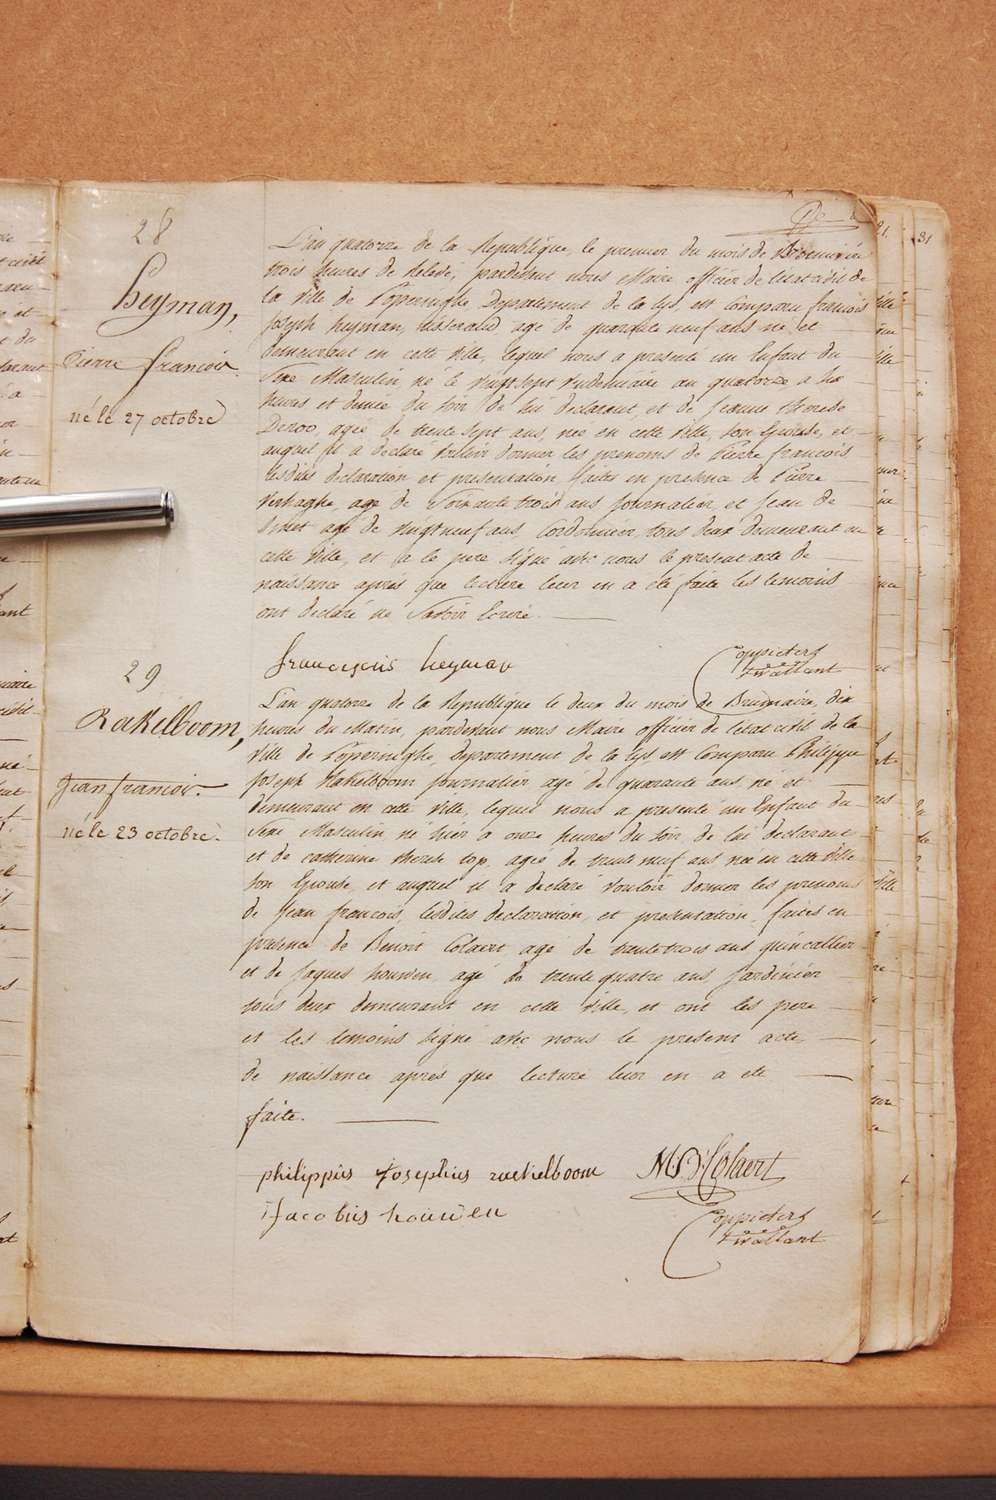 28
heyman,
Pierre françois
né le 27 octobre
L'an quatorze de la Republique, le premier du mois de Brumaire
trois heures de relevé, pardevant nous Maire officier de l'état civil de
la ville de Poperinghe, Departement de la Lys, est comparu francois
joseph heyman, tisserand, age de quarante neuf ans né et
demeurant en cette ville, lequel nous a presenté un Enfant du
Sexe Masculin, né le vingt sept vendemiaire an quatorze a six
heures et demie du soir de lui declarant, et de jeanne therese
Deroo, agée de trente sept ans, née en cette ville, son Epouse, et
auquel il a declaré vouloir donner les prenoms de Pierre francois
lesdites declaration et presentation faites en presence de Pierre
Verhaghe, age de Soixante trois ans journalier et jean de
age de vingt neuf ans Cordonnier, tous deux demeurant en
cette ville, et a le pere signé avec nous le present acte de
naissance apres que lecture leur en a été faite les temoins
ont declaré ne Savoir Ecrire.
franciscus heyman
Coppieters
t'wallant
29
Rakelboom,
jean francois.
né le 23 octobre.
L'an quatorze de la Republique le deux du mois de Brumaire, dix
heures du Matin, pardevant nous Maire officier de l'etat civil de la
ville de Poperinghe, departement de la lys est comparu Philippe
joseph Rakelboom journalier agé de quarante ans né et
demeurant en cette ville, lequel nous a presenté un Enfant du
Sexe Masculin né hier a onze heures du soir de lui declarant
et de catherine therese top, agée de trente neuf ans née en cette ville
son Epouse, et auquel il a declaré vouloir donner les prenoms
de jean francois, lesdites declaration, et presentation, faites en
presence de Benoit Colaert, agé de trente trois ans quincallier
et de jaques houwen, agé de trente quatre ans jardinier
tous deux demeurant en cette ville, et ont les pere
et les temoins signé avec nous le present acte
de naissance apres que lecture leur en a été
faite.
philippus Josephus rackelboom
M B Colaert
jacobus houwen
Coppieters
t'wallant
31